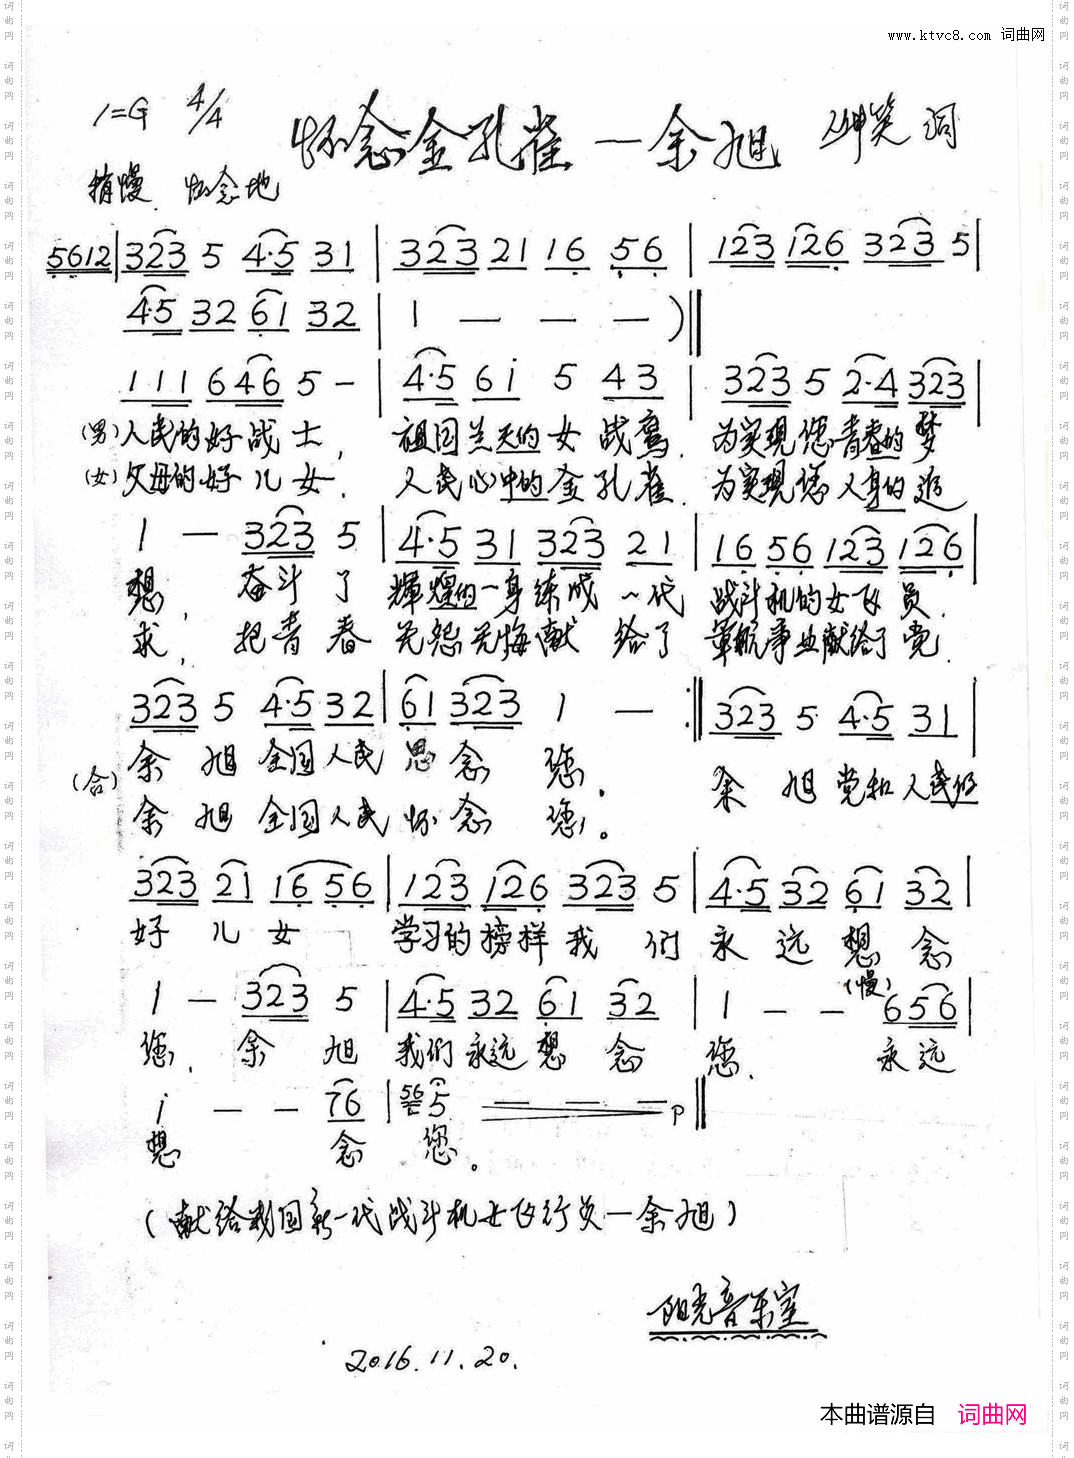 www.ktvc8.com 词曲网
1=G 4/4
怀念金孔雀一余旭
坤笑 词
稍慢 怀念地
5612 | 323 5 4·5 31 | 323 21 16 56 | 123 126 323 5 |
4·5 32 61 32 | 1 — — — ) ‖
111 646 5 — | 4·5 61 5 43 | 323 5 2·4 323 |
(男) 人民的好战士, 祖国兰天的女战鹰. 为实现您青春的梦
(女) 父母的好儿女. 人民心中的金孔雀. 为实现您人身的追
1 — 323 5 | 4·5 31 323 21 | 16 56 123 126 |
想, 奋斗了 輝煌的一身练成一代 战斗机的女飞员.
求, 把青春 无怨无悔献给了 軍航事业献给了党.
323 5 4·5 32 | 61 323 1 — :‖ 323 5 4·5 31 |
(合) 余旭全国人民思念您. 余旭党和人民的
余旭全国人民怀念您。
323 21 16 56 | 123 126 323 5 | 4·5 32 61 32 |
好儿女 学习的榜样我们永远想念
(慢)
1 — 323 5 | 4·5 32 61 32 | 1 — — 656 |
您. 余旭 我们永远想念您. 永远
i — — 76 | 56 5 — — — p ‖
想 念 您。
(献给我国新一代战斗机女飞行员一余旭)
阳光音乐室
2016.11.20.
本曲谱源自 词曲网